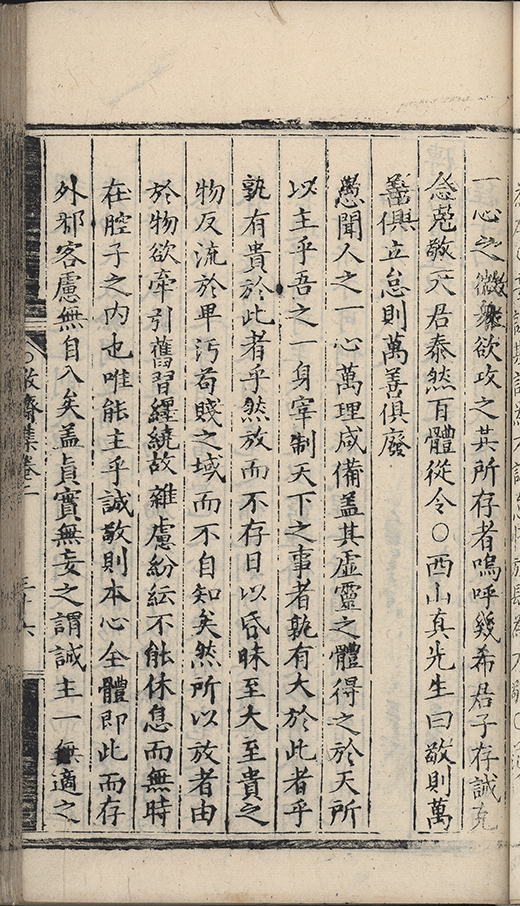 一心之微衆欲攻之其所存者嗚呼幾希君子存誠克
念克敬天君泰然百體從令○西山真先生曰敬則萬
善俱立怠則萬善俱廢
愚聞人之一心萬理咸備盖其虛靈之體得之於天所
以主乎吾之一身宰制天下之事者孰有大於此者乎
孰有貴於此者乎然放而不存日以昏昧至大至貴之
物反流於畢汚苟賤之域而不自知矣然所以放者由
於物欲牽引舊習纏繞故雜慮紛紜不能休息而無時
在腔子之内也唯能主乎誠敬則本心全體即此而存
外邪客慮無自入矣盖真實無妄之謂誠主一無適之
敬齋集卷二